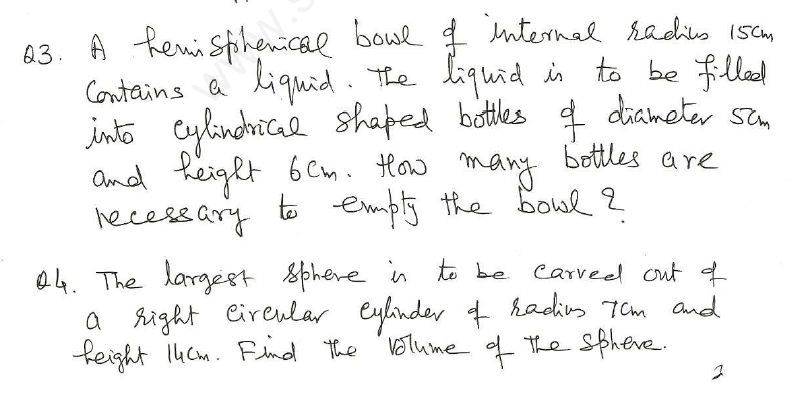 Q3. A hemispherical bowl of internal radius 15cm
Contains a liquid. The liquid is to be filled
into cylindrical shaped bottles of diameter 5cm
and height 6cm. How many bottles are
necessary to empty the bowl?
Q4. The largest sphere is to be carved out of
a right circular cylinder of radius 7cm and
height 14cm. Find the volume of the sphere.
2